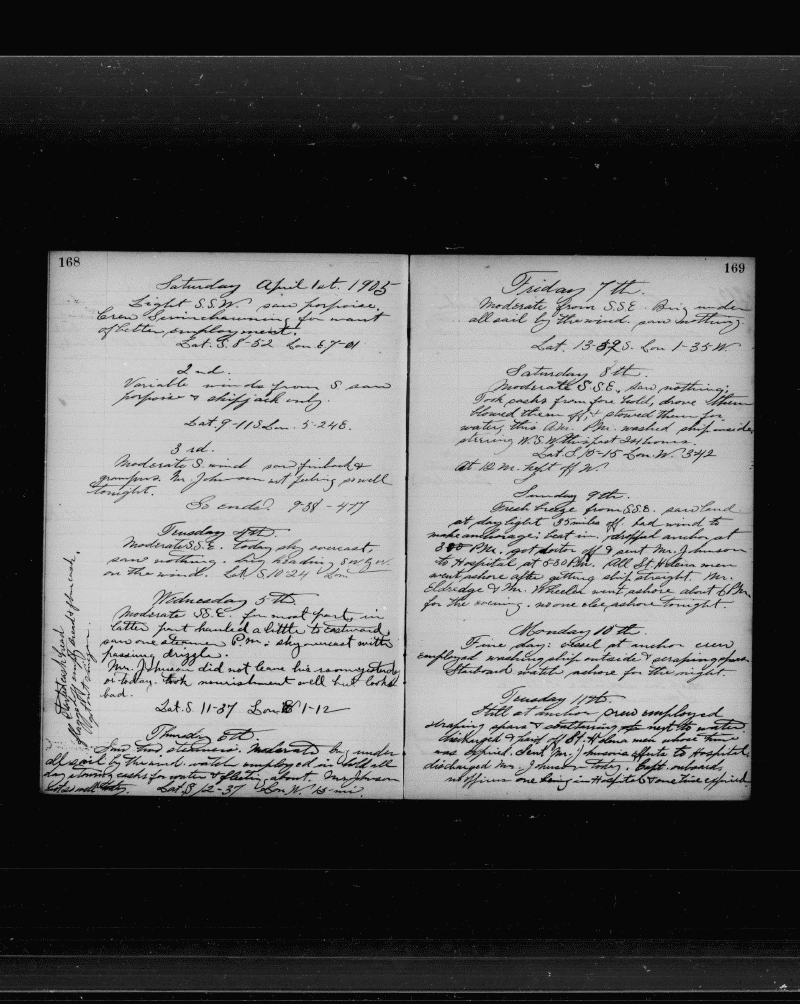 168
Saturday April 1st. 1905
Light S.S.W. saw porpoise.
Crew Swimchawning for want
of better employment!
Lat. S. 8-52 Lon E. 7-01
2nd.
Variable winds from S saw
porpoise & skipjack only.
Lat. 9-11 S Lon. 5-24 E.
3rd.
Moderate S. wind saw finback &
grampus. Mr. Johnson not feeling so well
tonight.
So ends. 9-38 - 4-77
Tuesday 4th.
Moderate S.S.E. today sky overcast,
saw nothing. heading S.W. by W.
on the wind. Lat. S 10-24 Lon
Wednesday 5th.
Moderate S.S.E. for most part, in
latter part hauled a little to eastward
saw one steamer P.M.; sky overcast with
passing drizzle.
Mr. Johnson did not leave his room yesterday
or today. took nourishment well but looks
bad.
Lat. S 11-37 Lon E 1-12
Thursday 6th.
two steamers. Moderate by under
all sail by the wind. watch employed in hold all
day stowing casks for water & about. Mr Johnson
not so well today. Lat S 12-37 Lon W. 15 mi.
169
Friday 7th.
Moderate from S.S.E. Brig under
all sail by the wind. saw nothing.
Lat. 13-52 S. Lon 1-35 W
Saturday 8th.
Moderate S.S.E., saw nothing;
Took casks from fore hold, drove them
blowed them off, & stowed them for
water, this A.M. P.M. washed ship inside
steering W.S.W. this past 24 hours.
Lat. S. 15-15 Lon W. 3-42
At 12 M. kept off W
Sunday 9th.
Fresh breeze from S.S.E. saw land
at daylight 35 miles off. had wind to
make anchorage; beat in. dropped anchor at
P.M. got doctor off & sent Mr. Johnson
to Hospital at 5-30 P.M. All St. Helena men
went ashore after getting ship straight. Mr.
Eldredge & Mr. Wheeler went ashore about 6 P.M.
for the evening. no one else ashore tonight.
Monday 10th.
Fine day: Vessel at anchor crew
employed washing ship outside & scraping spars
Starboard watch ashore for the night.
Tuesday 11th.
Still at anchor, crew employed
scraping spars &
discharged & paid off St. Helena men whose time
was expired. Sent Mr. Johnsons effects to Hospital,
discharged Mr. Johnson today. Capt. onboard
no officers one being in Hospital & one time expired.